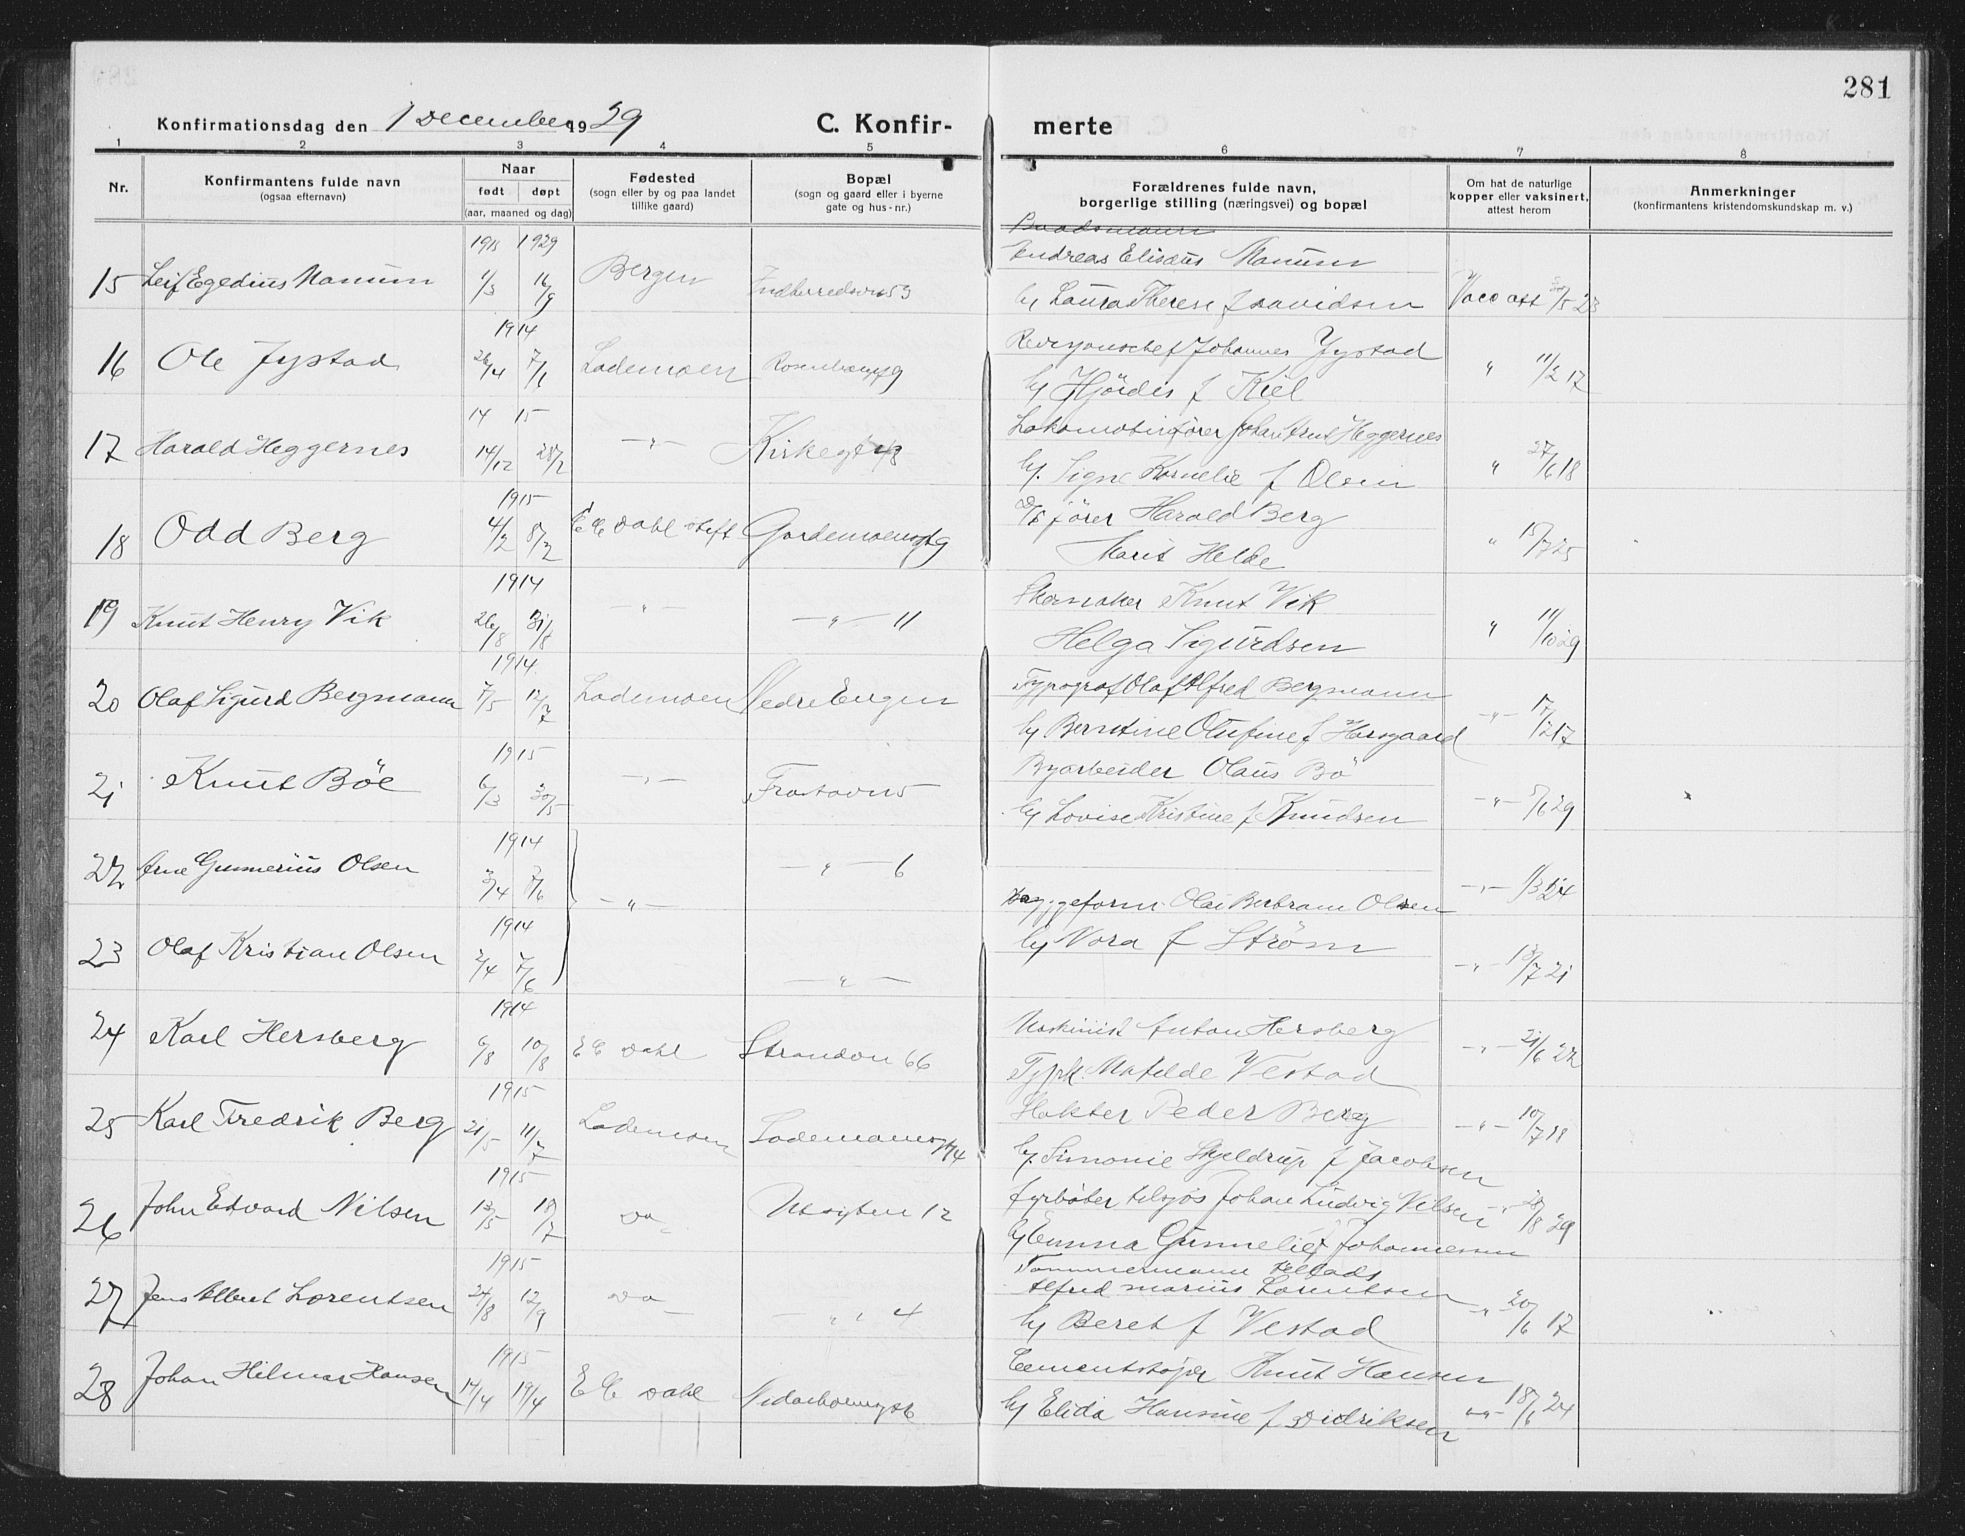 281
Konfirmationsdag den 1 December 1929 C. Konfir- merte
1 2 3 4 5 6 7 8
Nr. Konfirmantens fulde navn (ogsaa efternavn) Naar født døpt (aar, maaned og dag) Fødested (sogn eller by og paa landet tillike gaard) Bopæl (sogn og gaard eller i byerne gate og hus-nr.) Forældrenes fulde navn, borgerlige stilling (næringsvei) og bopæl Om hat de naturlige kopper eller vaksinert, attest herom Anmerkninger (konfirmantens kristendomskundskap m. v.)
1915 1929 Baadsmann
15 Leif Egedius Manum 1/3 16/9 Bergen 53 Andreas Elisæus Manum
Hj Laura Therese f Davidsen Vacc att 30/5 23
1914
16 Ole Jystad 26/4 7/1 Lademoen 9 Johannes Jystad
Hj Hjördis f Kiel " 11/2 17
14 15
17 Harald Heggernes 14/12 28/2 -"- Kirkegt 48 Lokomotivfører Johan Arnt Heggernes
Hj. Signe Kornelie f Olsen " 27/6 18
1915
18 Odd Berg 4/2 8/2 E C Dahl stift Gardemoensgt 9 fører Harald Berg
Marit Helde " 15/7 25
1914
19 Knut Henry Vik 26/8 31/8 -"- -"- 11 Skomaker Knut Vik
Helga Sigurdsen " 11/10 29
1914
20 Olaf Sigurd Bergmann 7/5 12/7 Lademoen Nedre Engen Typograf Olaf Alfred Bergmann
Hj Berntine Olufine f Hasgaard -"- 17/2 17
1915
21 Knut Böe 6/3 30/5 -"- Frostavn 5 Byarbeider Olaus Bö
Hj Lovise Kristine f Knudsen -"- 5/6 29
1914
22 Arne Gunnerius Olsen 2/4 7/6 -"- -"- 6 -"- 1/3 24
1914 Byggeform. Olai Bertram Olsen
23 Olaf Kristian Olsen 2/4 7/6 -"- Hj Nora f Strøm -"- 13/7 21
1914
24 Karl Hersberg 6/8 10/8 E C Dahl Strandvn 66 Maskinist Anton Hersberg
Tjpk. Matelde Vestad -"- 21/6 22
1915
25 Karl Fredrik Berg 21/5 11/7 Lademoen Lademoensgt 4 Slakter Peder Berg
Hj. Simonie Skjeldrup f Jacobsen -"- 10/7 18
1915
26 John Edvard Nilsen 13/5 18/7 Do Utsigten 12 fyrbøter tilsjøs Johan Ludvig Nilsen
Hj Emma Gunnelie f Johannessen " 28/8 29
1915 Tømmermann
27 Jens Albert Lorentsen 24/8 12/9 Do -"- 4 Alfred Marius Lorentsen
Hj Beret f Vestad -"- 20/6 17
1915
28 Johan Hilmar Hansen 14/4 19/4 E C Dahl Cementstøper Knut Hansen
Hj Elida Hansine f Didriksen -"- 18/6 24